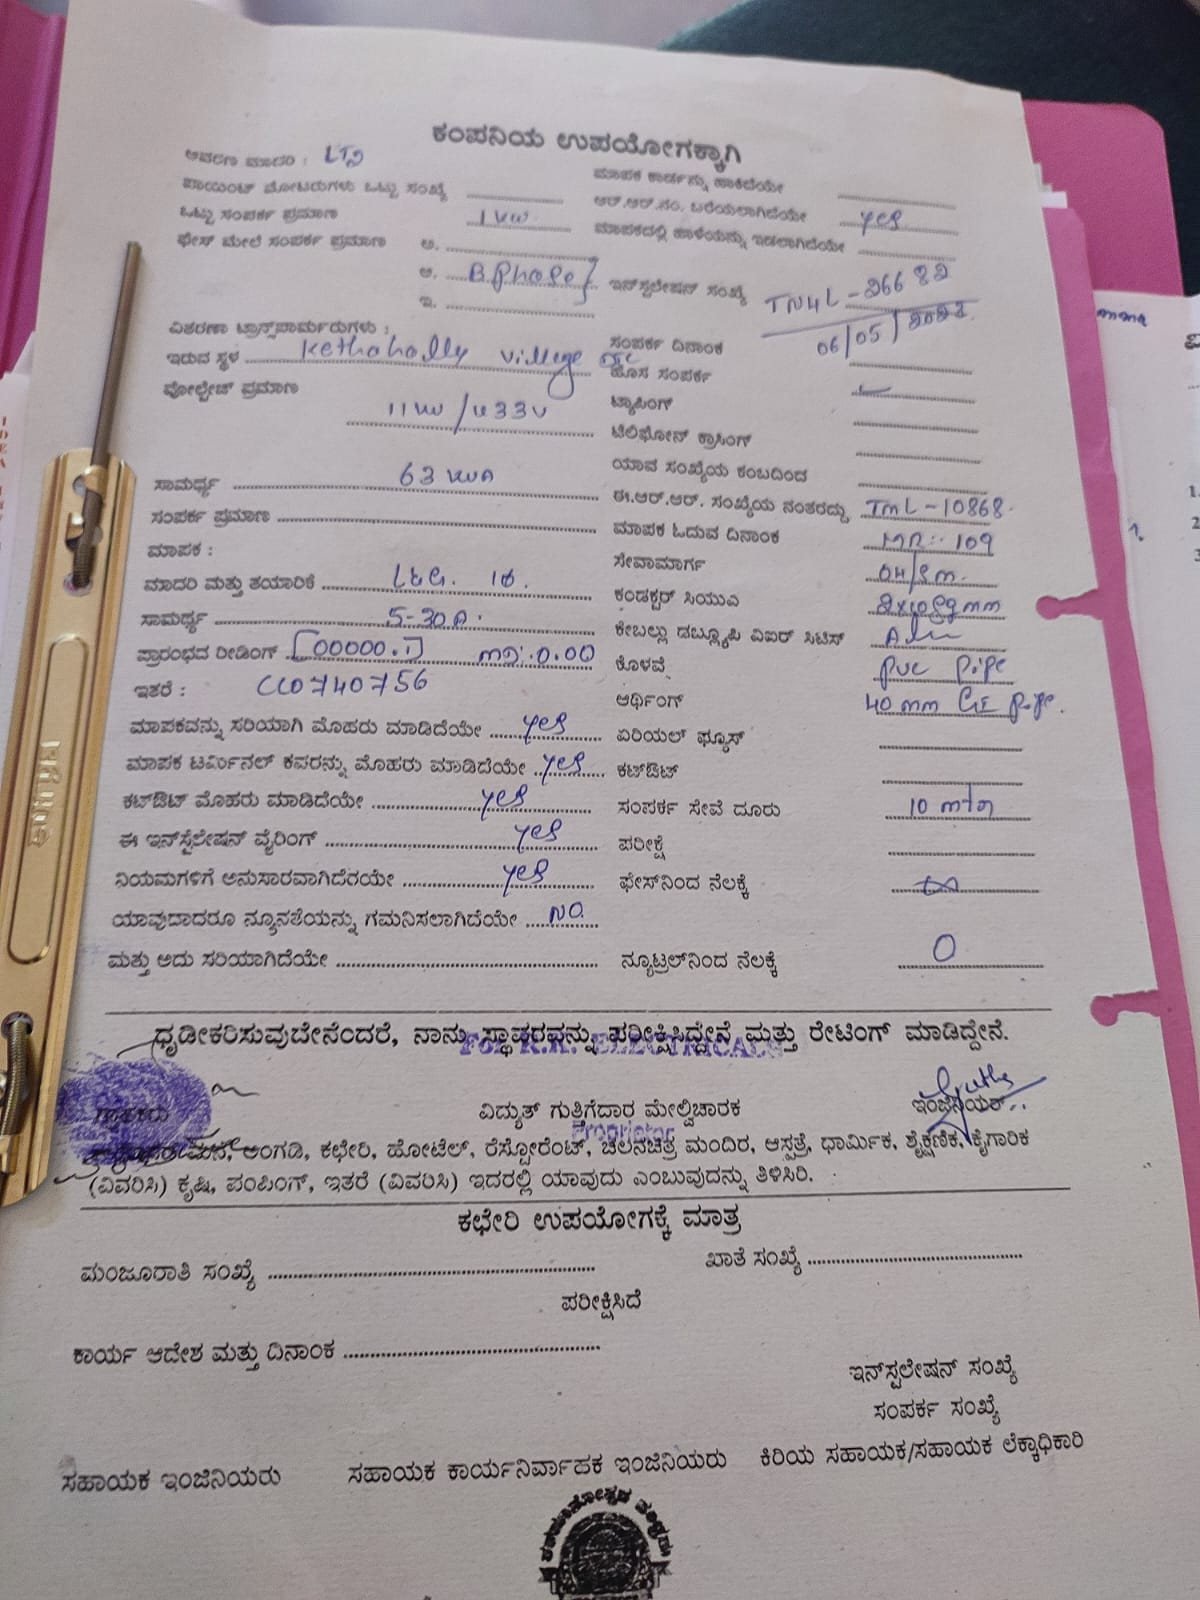 ಕಂಪನಿಯ ಉಪಯೋಗಕ್ಕಾಗಿ
ಆವರಣ ಮಾದರಿ :
ಮಾಪಕ ಕಾರ್ಡನ್ನು ಹಾಕಿದೆಯೇ
ಪಾಯಿಂಟ್ ಮೋಟರುಗಳು ಒಟ್ಟು ಸಂಖ್ಯೆ
ಆರ್.ಆರ್.ನಂ. ಬರೆಯಲಾಗಿದೆಯೇ yes
ಒಟ್ಟು ಸಂಪರ್ಕ ಪ್ರಮಾಣ 1 KW
ಮಾಪಕದಲ್ಲಿ ಹಾಳೆಯನ್ನು ಇಡಲಾಗಿದೆಯೇ
ಫೇಸ್ ಮೇಲೆ ಸಂಪರ್ಕ ಪ್ರಮಾಣ ಅ.
ಆ. B Phase
ಇನ್‌ಸ್ಟಲೇಷನ್ ಸಂಖ್ಯೆ TN4L-26682
ಇ.
06/05/2022
ವಿತರಣಾ ಟ್ರಾನ್ಸ್‌ಫಾರ್ಮರುಗಳು :
ಸಂಪರ್ಕ ದಿನಾಂಕ
ಇರುವ ಸ್ಥಳ Kethohally Villege
ಹೊಸ ಸಂಪರ್ಕ
ವೋಲ್ಟೇಜ್ ಪ್ರಮಾಣ
11KV/433V
ಟ್ಯಾಪಿಂಗ್
ಟೆಲಿಫೋನ್ ಕ್ರಾಸಿಂಗ್
ಯಾವ ಸಂಖ್ಯೆಯ ಕಂಬದಿಂದ
ಸಾಮರ್ಥ್ಯ 63 KVA
ಈ.ಆರ್.ಆರ್. ಸಂಖ್ಯೆಯ ನಂತರದ್ದು TML-10868.
ಸಂಪರ್ಕ ಪ್ರಮಾಣ
ಮಾಪಕ ಓದುವ ದಿನಾಂಕ MR:- 109
ಮಾಪಕ :
ಸೇವಾಮಾರ್ಗ
ಮಾದರಿ ಮತ್ತು ತಯಾರಿಕೆ L&G.
ಕಂಡಕ್ಟರ್ ಸಿಯುವಿ
ಸಾಮರ್ಥ್ಯ 5-30A.
ಕೇಬಲ್ಲು ಡಬ್ಲ್ಯೂಪಿ ವಿಐಆರ್ ಸಿಟಿಸ್
ಪ್ರಾರಂಭದ ರೀಡಿಂಗ್ [00000.1] MD:0.00
ಕೊಳವೆ PVC Pipe
ಇತರೆ : CC0740756
ಆರ್ಥಿಂಗ್ 40 mm GI Pipe.
ಮಾಪಕವನ್ನು ಸರಿಯಾಗಿ ಮೊಹರು ಮಾಡಿದೆಯೇ yes
ಏರಿಯಲ್ ಫ್ಯೂಸ್
ಮಾಪಕ ಟರ್ಮಿನಲ್ ಕವರನ್ನು ಮೊಹರು ಮಾಡಿದೆಯೇ yes
ಕಟ್‌ಔಟ್
ಕಟ್‌ಔಟ್ ಮೊಹರು ಮಾಡಿದೆಯೇ yes
ಸಂಪರ್ಕ ಸೇವೆ ದೂರು 10 mtr
ಈ ಇನ್‌ಸ್ಟಲೇಷನ್ ವೈರಿಂಗ್ yes
ಪರೀಕ್ಷೆ
ನಿಯಮಗಳಿಗೆ ಅನುಸಾರವಾಗಿದೆರಯೇ yes
ಫೇಸ್‌ನಿಂದ ನೆಲಕ್ಕೆ ∞
ಯಾವುದಾದರೂ ನ್ಯೂನತೆಯನ್ನು ಗಮನಿಸಲಾಗಿದೆಯೇ NO
ಮತ್ತು ಅದು ಸರಿಯಾಗಿದೆಯೇ
ನ್ಯೂಟ್ರಲ್‌ನಿಂದ ನೆಲಕ್ಕೆ 0
ಧೃಡೀಕರಿಸುವುಬೇನೆಂದರೆ, ನಾನು ಸ್ಥಾವರವನ್ನು ಪರೀಕ್ಷಿಸಿದ್ದೇನೆ ಮತ್ತು ರೇಟಿಂಗ್ ಮಾಡಿದ್ದೇನೆ.
For K.R. ELECTRICALS
ಗ್ರಾಹಕರು ವಿದ್ಯುತ್ ಗುತ್ತಿಗೆದಾರ ಮೇಲ್ವಿಚಾರಕ ಇಂಜಿನಿಯರ್
Proprietor
ಮನೆ, ಅಂಗಡಿ, ಕಛೇರಿ, ಹೋಟೆಲ್, ರೆಸ್ಟೋರೆಂಟ್, ಚಲನಚಿತ್ರ ಮಂದಿರ, ಆಸ್ಪತ್ರೆ, ಧಾರ್ಮಿಕ, ಶೈಕ್ಷಣಿಕ, ಕೈಗಾರಿಕ
(ವಿವರಿಸಿ) ಕೃಷಿ, ಪಂಪಿಂಗ್, ಇತರೆ (ವಿವರಿಸಿ) ಇದರಲ್ಲಿ ಯಾವುದು ಎಂಬುವುದನ್ನು ತಿಳಿಸಿರಿ.
ಕಛೇರಿ ಉಪಯೋಗಕ್ಕೆ ಮಾತ್ರ
ಮಂಜೂರಾತಿ ಸಂಖ್ಯೆ
ಖಾತೆ ಸಂಖ್ಯೆ
ಪರೀಕ್ಷಿಸಿದೆ
ಕಾರ್ಯ ಆದೇಶ ಮತ್ತು ದಿನಾಂಕ
ಇನ್‌ಸ್ಟಲೇಷನ್ ಸಂಖ್ಯೆ
ಸಂಪರ್ಕ ಸಂಖ್ಯೆ
ಸಹಾಯಕ ಇಂಜಿನಿಯರು ಸಹಾಯಕ ಕಾರ್ಯನಿರ್ವಾಹಕ ಇಂಜಿನಿಯರು ಕಿರಿಯ ಸಹಾಯಕ/ಸಹಾಯಕ ಲೆಕ್ಕಾಧಿಕಾರಿ